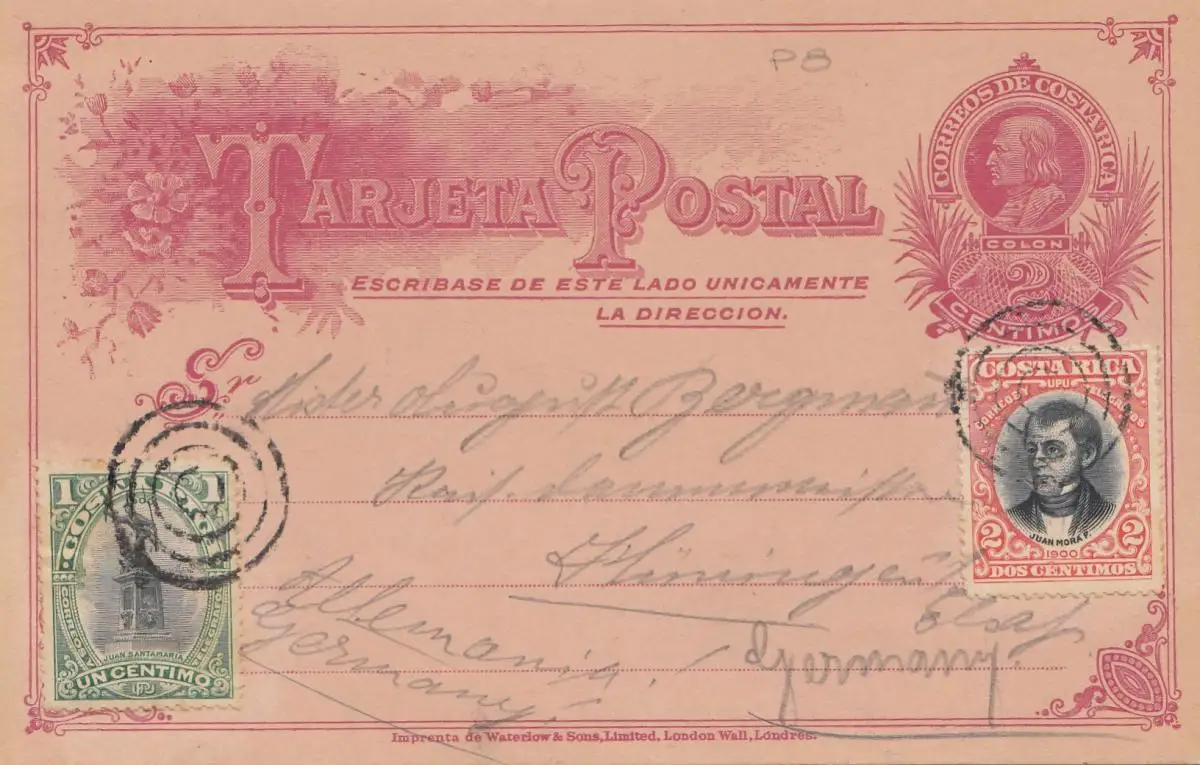 P8
CORREOS DE COSTA RICA
COLON
2
CENTIMOS
TARJETA POSTAL
ESCRIBASE DE ESTE LADO UNICAMENTE
LA DIRECCION.
Sr
August Bergmann
Kais.
Hüningen
Elsaß
Alemania!
Germany!
Germany.
COSTA RICA
UPU
CORREOS Y TELEGRAFOS
JUAN MORA P.
2 1900 2
DOS CÉNTIMOS
1 1
COSTA RICA
CORREOS Y TELEGRAFOS
JUAN SANTAMARIA
UN CENTIMO
UPU
Imprenta de Waterlow & Sons, Limited, London Wall, Londres.